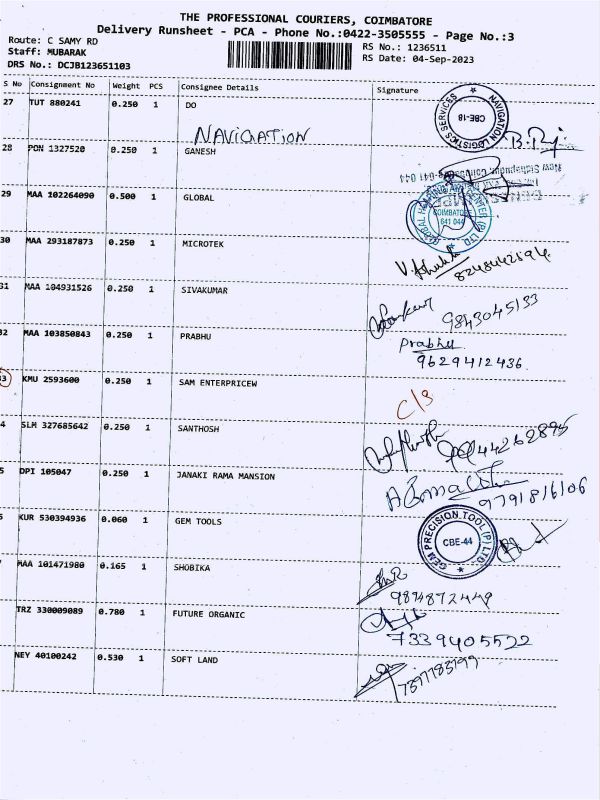 THE PROFESSIONAL COURIERS, COIMBATORE
Delivery Runsheet - PCA - Phone No.:0422-3505555 - Page No.:3
Route: C SAMY RD
RS No.: 1236511
Staff: MUBARAK
RS Date: 04-Sep-2023
DRS No.: DCJB123651103
S No Consignment No Weight PCS Consignee Details Signature
27 TUT 880241 0.250 1 DO
NAVIGATION LOGISTICS SERVICES CBE-18
NAVIGATION
28 PON 1327520 0.250 1 GANESH
29 MAA 102264090 0.500 1 GLOBAL
COIMBATORE
641 044
30 MAA 293187873 0.250 1 MICROTEK
8248442194
31 MAA 104931526 0.250 1 SIVAKUMAR
9843045133
32 MAA 103850843 0.250 1 PRABHU
Prabhu
9629412436
33 KMU 2593600 0.250 1 SAM ENTERPRICEW
C/s
4 SLM 327685642 0.250 1 SANTHOSH
44262895
5 DPI 105047 0.250 1 JANAKI RAMA MANSION
9791816106
6 KUR 530394936 0.060 1 GEM TOOLS
GEM PRECISION TOOL (P) LTD CBE-44
MAA 101471980 0.165 1 SHOBIKA
9874872449
TRZ 330009089 0.780 1 FUTURE ORGANIC
7339405522
NEY 40100242 0.530 1 SOFT LAND
7397183199